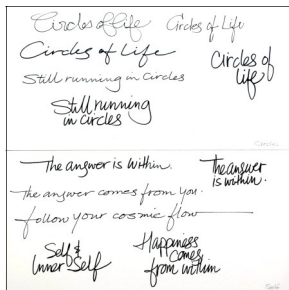 Circles of life
Circles of Life
Circles of Life
Circles of
life
Still running in Circles
Still running
in circles
The answer is Within.
The answer
is within.
The answer comes from you.
follow your cosmic flow
Self &
Inner Self
Happiness
comes
from within